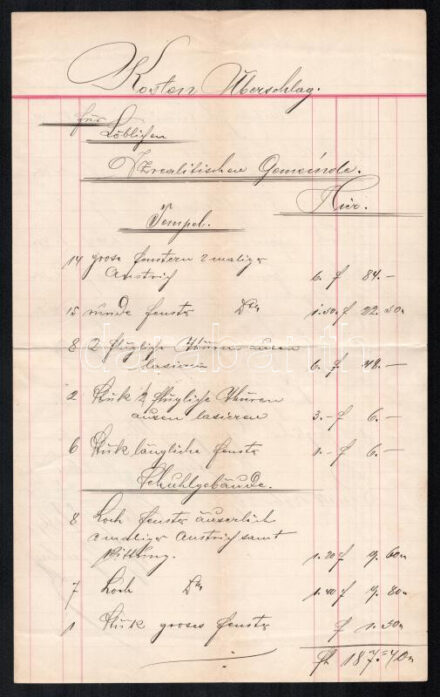 Kosten Überschlag.
für
Löblichen
Izraelitischen Gemeinde.
Hier.
Tempel.
14 grose fenstern 2 maliger
Anstrich 6. f 84.—
15 runde fenstr Dto 1.50. f 22.50
8 2 flügliche Thüren ausen
lasieren 6. f. 48.—
2 Stük ½ flügliche Thüren
ausen lasieren 3.— f 6.—
6 Stük längliche fenstr 1.— f 6.—
Schuhlgebäude.
8 Loch fenstr äuserlich
2 maliger Anstrich samt
Kitting. 1.20 f 9.60
7 Loch Dto 1.40 f 9.80
1 Stük groses fenstr f 1.50
fl. 187.40